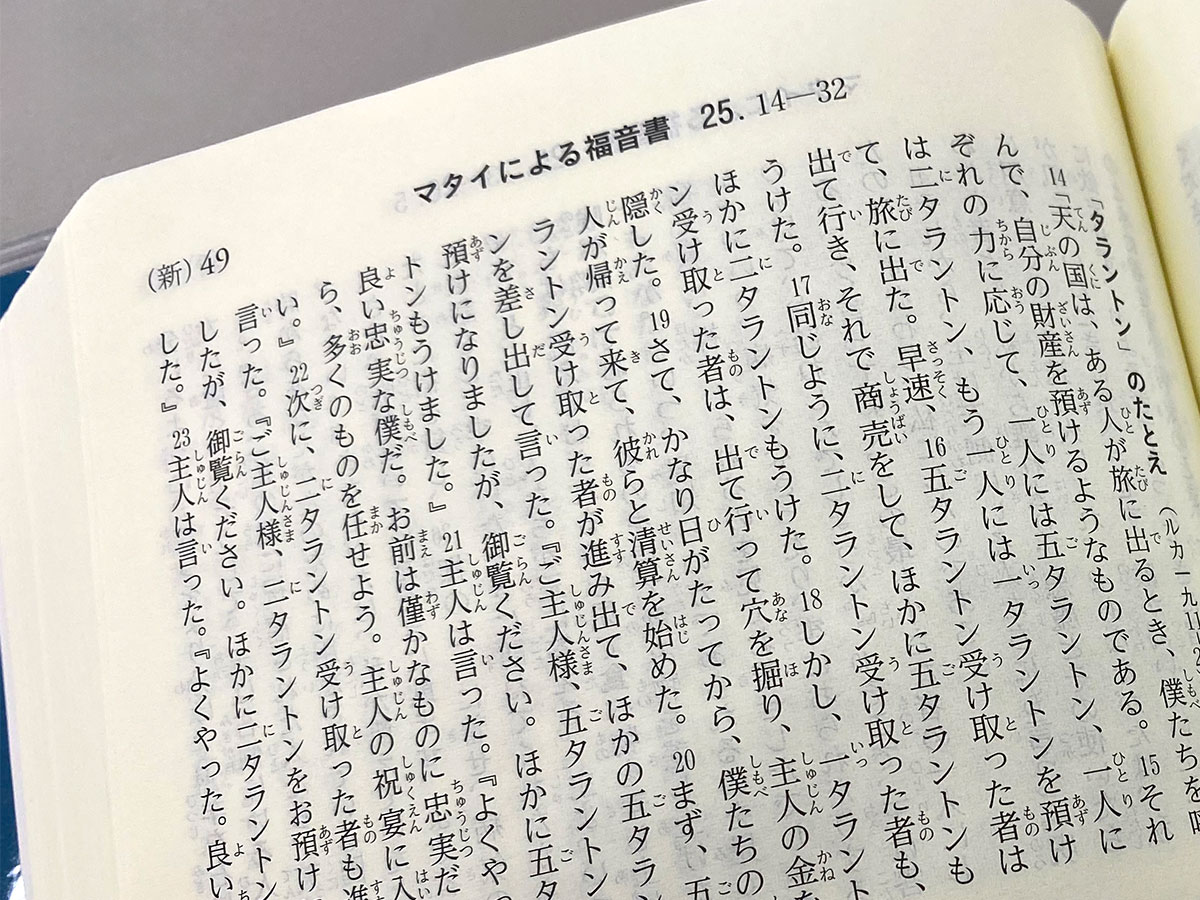 マタイによる福音書 25. 14―32
(新) 49
「タラントン」のたとえ (ルカ一九11
14「天の国は、ある人が旅に出るとき、僕たちを呼
んで、自分の財産を預けるようなものである。15それ
ぞれの力に応じて、一人には五タラントン、一人に
は二タラントン、もう一人には一タラントンを預け
て、旅に出た。早速、16五タラントン受け取った者は
出て行き、それで商売をして、ほかに五タラントンも
うけた。17同じように、二タラントン受け取った者も、
ほかに二タラントンもうけた。18しかし、一タラント
ン受け取った者は、出て行って穴を掘り、主人の金を
隠した。19さて、かなり日がたってから、僕たちの
人が帰って来て、彼らと清算を始めた。20まず、五
ラントン受け取った者が進み出て、ほかの五タラン
ンを差し出して言った。『ご主人様、五タラントン
預けになりましたが、御覧ください。ほかに五タ
トンもうけました。』21主人は言った。『よくや
良い忠実な僕だ。お前は僅かなものに忠実だ
ら、多くのものを任せよう。主人の祝宴に入
い。』22次に、二タラントン受け取った者も進
言った。『ご主人様、二タラントンをお預け
したが、御覧ください。ほかに二タラントン
した。』23主人は言った。『よくやった。良い